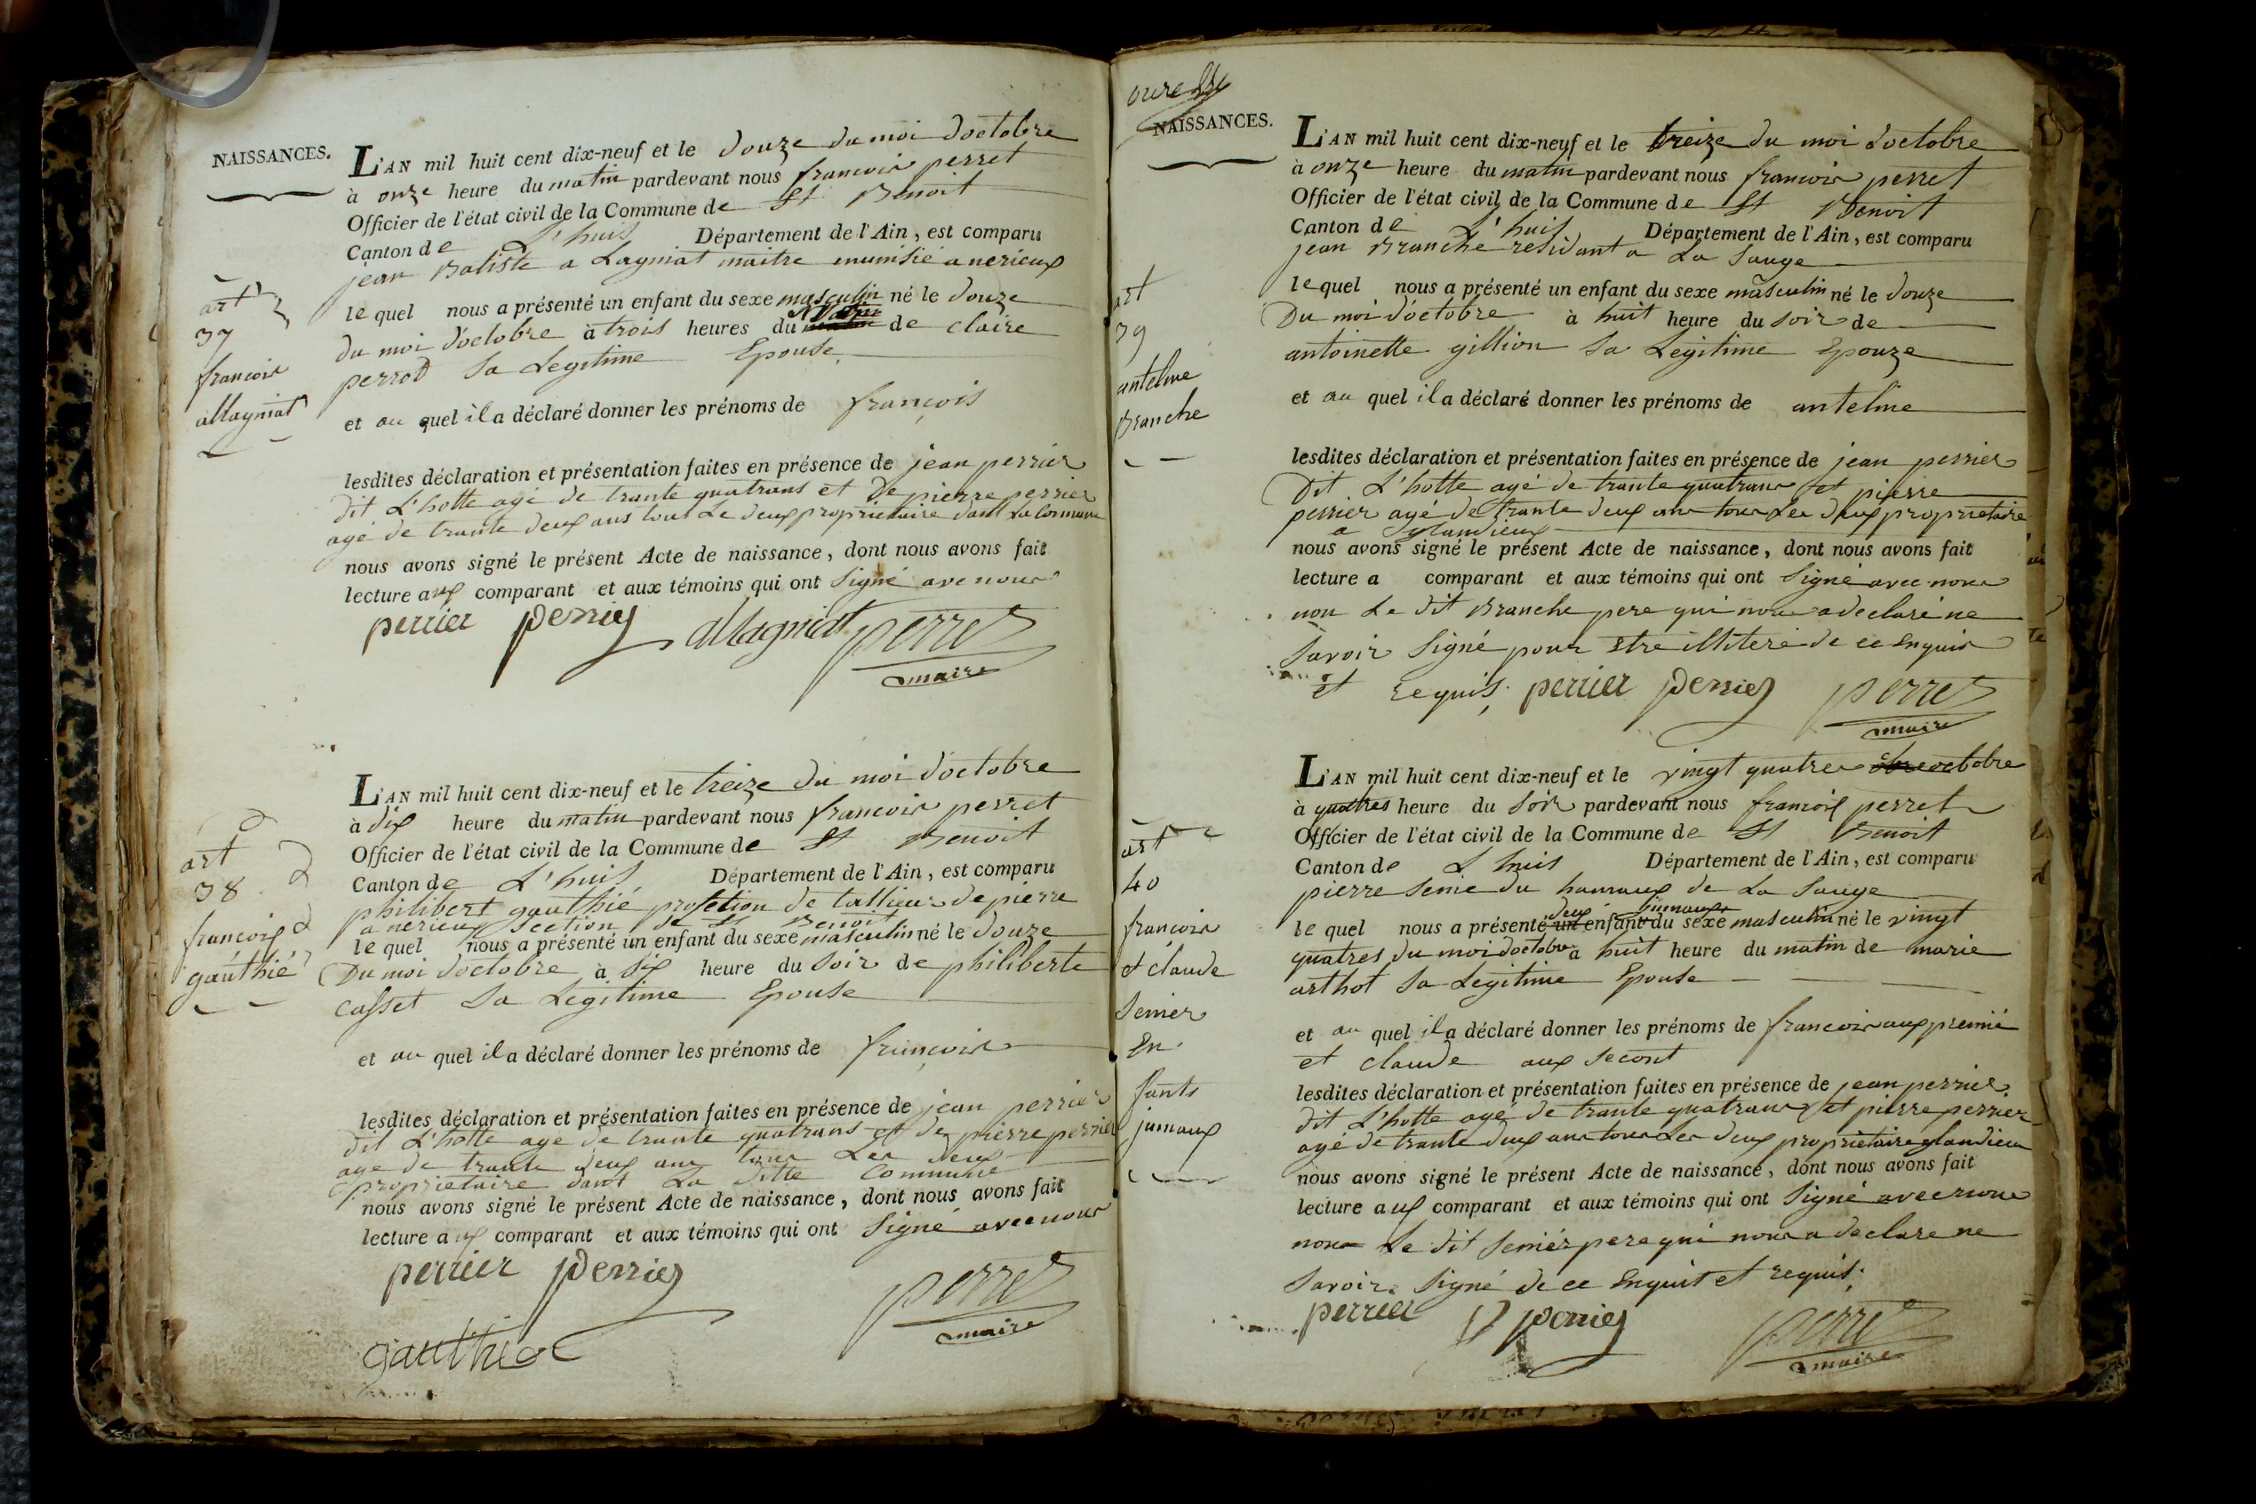 NAISSANCES.
L'AN mil huit cent dix-neuf et le douze du moi doctobre
à onze heure du matin pardevant nous francois perret
Officier de l'état civil de la Commune de St Benoit
Canton de L'huis Département de l'Ain, est comparu
jean Batiste a Lagniat maitre a nerieux
le quel nous a présenté un enfant du sexe masculin né le douze
du moi d'octobre à trois heures du de claire
perrod sa Legitime Epouse
et au quel il a déclaré donner les prénoms de françois
lesdites déclaration et présentation faites en présence de jean perrier
dit L'hotte agé de trante quatrans et de pierre perrier
agé de trante deux ans tout Le deux proprietaire dant La Commune
nous avons signé le présent Acte de naissance, dont nous avons fait
lecture aux comparant et aux témoins qui ont Signé ave nous
perrier perrier allagniat perret
maire
art
37
francois
allagniat
L'AN mil huit cent dix-neuf et le treize du moi d'octobre
à dix heure du matin pardevant nous francois perret
Officier de l'état civil de la Commune de St Benoit
Canton de L'huis Département de l'Ain, est comparu
philibert gauthié profetion de tallieur de pierre
a nerieux Section de St Benoit
le quel nous a présenté un enfant du sexe masculin né le douze
Du moi doctobre à six heure du soir de philiberte
Casset sa Legitime Epouse
et au quel il a déclaré donner les prénoms de françois
lesdites déclaration et présentation faites en présence de jean perrier
dit L'hotte age de trante quatrans et de pierre perrier
age de trante deux ans tous Les deux
proprietaire dant La ditte Commune
nous avons signé le présent Acte de naissance, dont nous avons fait
lecture aux comparant et aux témoins qui ont Signé avec nous
perrier perrier perret
maire
gauthier
art
38
francois
gauthié
NAISSANCES.
L'AN mil huit cent dix-neuf et le treize du moi doctobre
à onze heure du matin pardevant nous francois perret
Officier de l'état civil de la Commune de St Benoit
Canton de L'huis Département de l'Ain, est comparu
jean Branche residant a La Sauge
le quel nous a présenté un enfant du sexe masculin né le douze
Du moi d'octobre à huit heure du soir de
antoinette gillion sa Legitime Epouze
et au quel il a déclaré donner les prénoms de antelme
lesdites déclaration et présentation faites en présence de jean perrier
Dit L'hotte agé de trante quatrans et pierre
perrier agé de trante deux ans tous Les deux proprietaire
a glandieux
nous avons signé le présent Acte de naissance, dont nous avons fait
lecture a comparant et aux témoins qui ont Signé avec nous
non Le dit Branche pere qui nous a declaré ne
Savoir Signé pour Etre illiteré de ce Enquis
et requis; perrier perrier perret
maire
art
39
antelme
Branche
L'AN mil huit cent dix-neuf et le vingt quatres octobre
à quatres heure du Soir pardevant nous francois perret
Officier de l'état civil de la Commune de St Benoit
Canton de L huis Département de l'Ain, est comparu
pierre Senie du hamaux de La Sauge
deux jumaux
le quel nous a présenté un enfant du sexe masculin né le vingt
quatres du moi doctobre à huit heure du matin de marie
arthot sa Legitime Epouse
et au quel il a déclaré donner les prénoms de francois aux premié
et claude aux second
lesdites déclaration et présentation faites en présence de jean perrier
dit L'hotte agé de trante quatrans et pierre perrier
agé de trante deux ans tous Les deux proprietaire glandieu
nous avons signé le présent Acte de naissance, dont nous avons fait
lecture aux comparant et aux témoins qui ont Signé avec nous
non Le dit Senier pere qui nous a declare ne
Savoir Signé de ce Enquit et requis;
perrier perrier perret
maire
art
40
francois
et claude
Senier
En
fants
jumaux